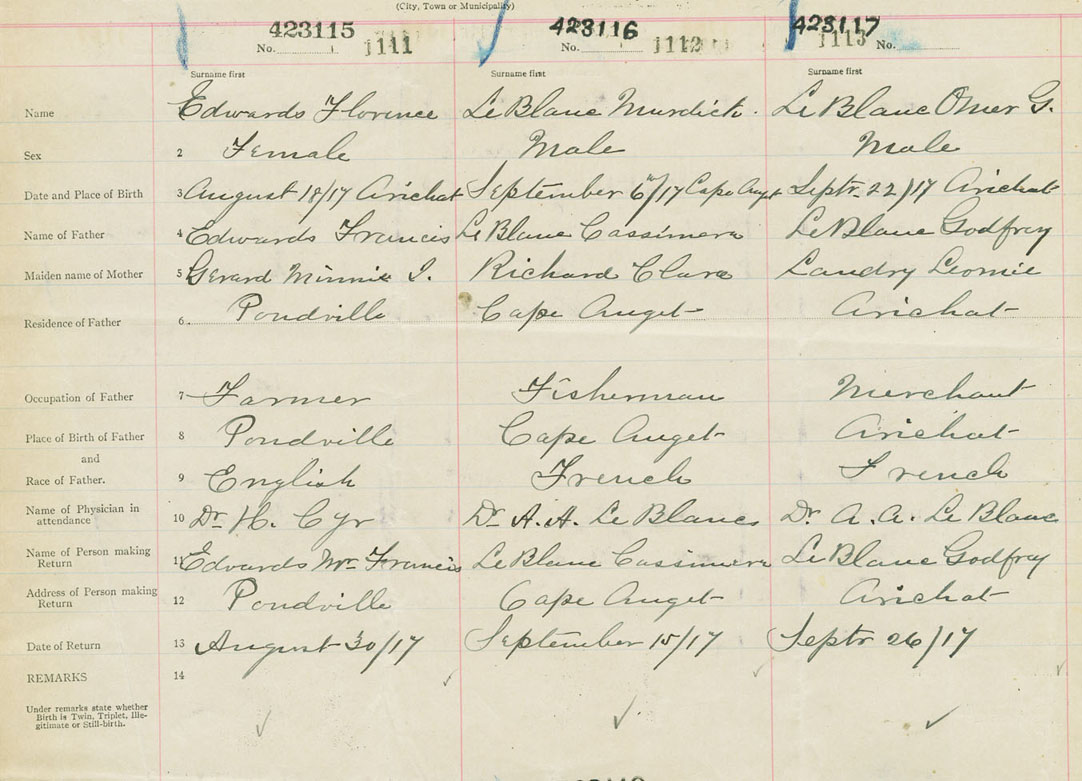 (City, Town or Municipality)
423115 423116 423117
No. 1111 No. 1112 1113 No.
Surname first Surname first Surname first
Name Edwards Florence Le Blanc Murdick. Le Blanc Omer G.
Sex 2 Female Male Male
Date and Place of Birth 3 August 18/17 Arichat September 6/17 Cape Auget Septr. 22/17 Arichat
Name of Father 4 Edwards Francis Le Blanc Cassimere Le Blanc Godfrey
Maiden name of Mother 5 Gerard Minnie I. Richard Clara Landry Leonie
Residence of Father 6 Pondville Cape Auget Arichat
Occupation of Father 7 Farmer Fisherman Merchant
Place of Birth of Father 8 Pondville Cape Auget Arichat
and
Race of Father. 9 English French French
Name of Physician in attendance 10 Dr. H. Cyr Dr. A. A. Le Blanc Dr. A. A. Le Blanc
Name of Person making Return 11 Edwards Mr. Francis Le Blanc Cassimere Le Blanc Godfray
Address of Person making Return 12 Pondville Cape Auget Arichat
Date of Return 13 August 30/17 September 15/17 Septr 26/17
REMARKS 14
Under remarks state whether
Birth is Twin, Triplet, Ille-
gitimate or Still-birth.